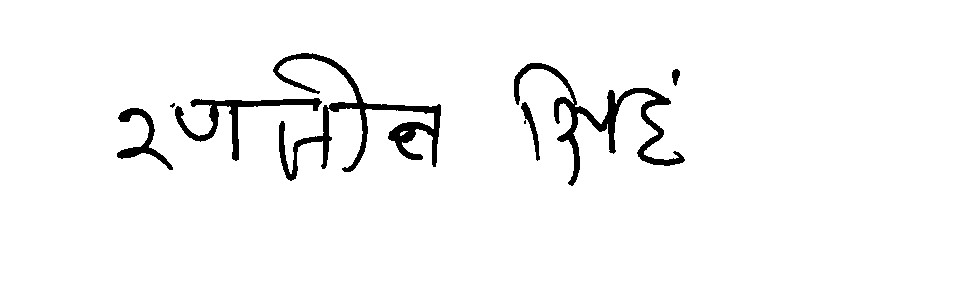 रणजीत सिहं